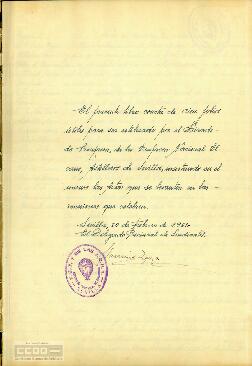 - El presente libro consta de cien folios
útiles para ser utilizado por el Jurado
de Empresa, de la Empresa Nacional El
cano, Astilleros de Sevilla, anotando en el
mismo las actas que se levanten en las
reuniones que celebren.
- Sevilla, 20 de Febrero de 1961 -
- El Delegado Provincial de Sindicatos,
CCOO